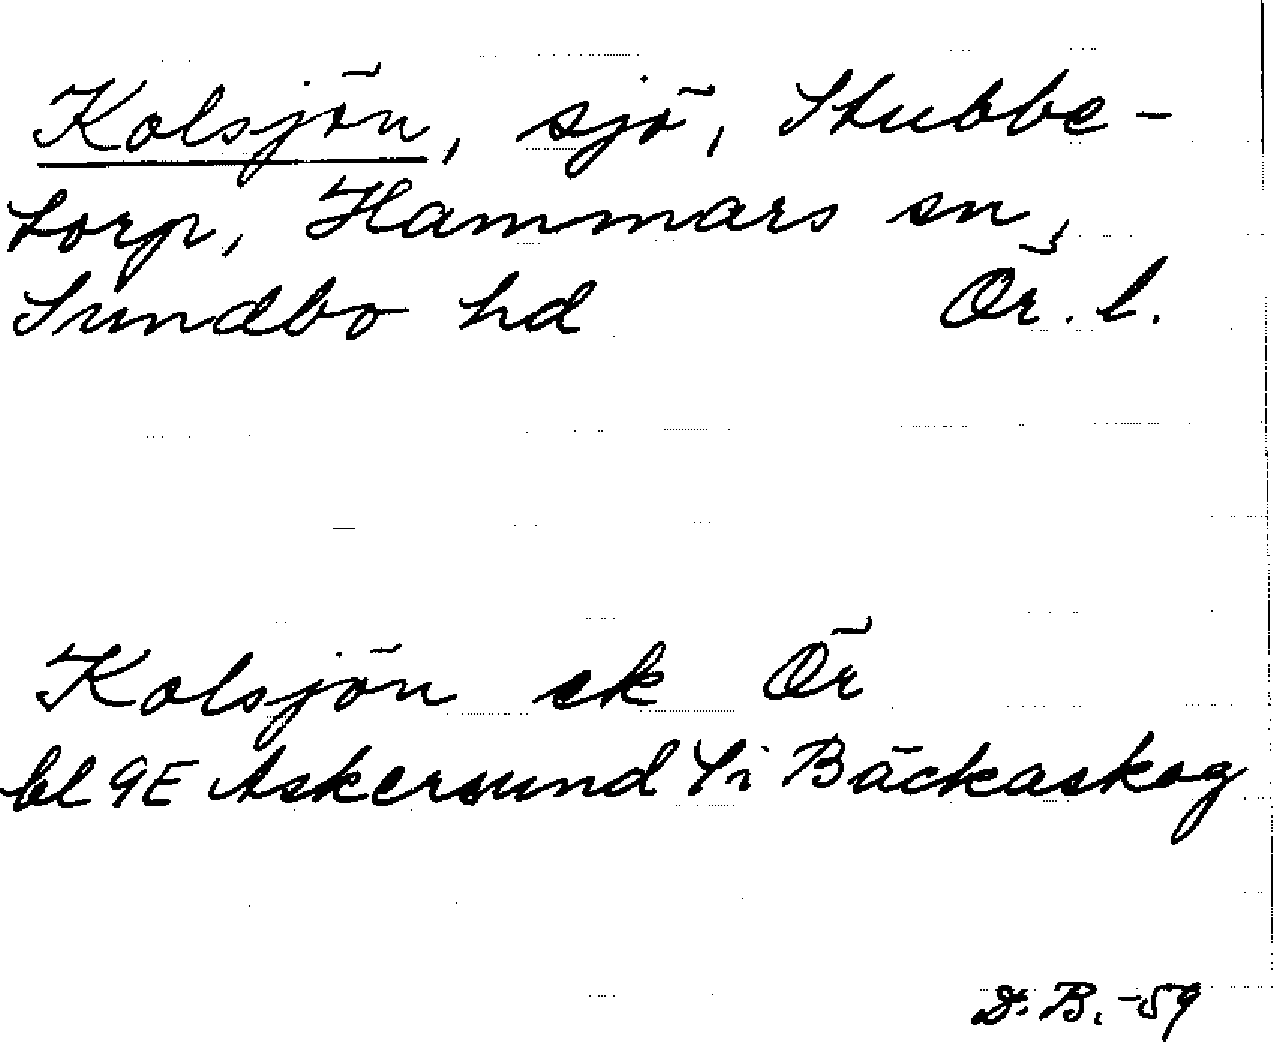 Kolsjön, sjö, Stubbe-
torp, Hammars sn,
Sundbo hd Ör. l.
Kolsjön ek Ör
bl 9E Askersund 4i Bäckaskog
D. B. -59